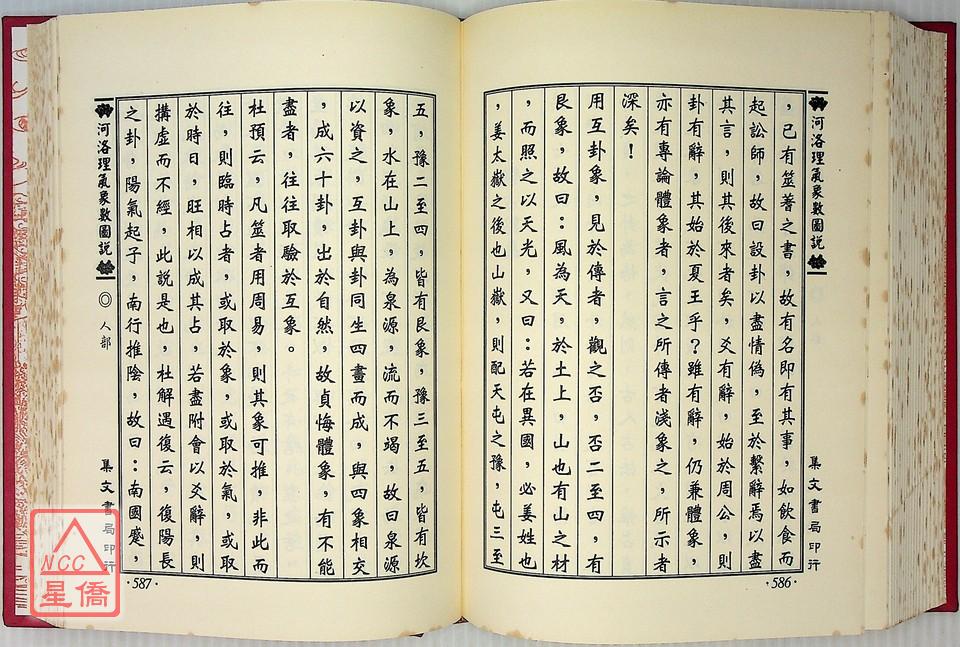 河洛理氣象數圖說
集文書局印行
，已有筮著之書，故有名即有其事，如飲食而
起訟師，故曰設卦以盡情偽，至於繫辭焉以盡
其言，則其後來者矣，爻有辭，始於周公，則
卦有辭，其始於夏王乎？雖有辭，仍兼體象，
亦有專論體象者，言之所傳者淺象之，所示者
深矣！
用互卦象，見於傳者，觀之否，否二至四，有
艮象，故曰：風為天，於土上，山也有山之材
，而照之以天光，又曰：若在異國，必姜姓也
，姜太嶽之後也山嶽，則配天屯之豫，屯三至
·586·
五，豫二至四，皆有艮象，豫三至五，皆有坎
象，水在山上，為泉源，流而不竭，故曰泉源
以資之，互卦與卦同生四畫而成，與四象相交
，成六十卦，出於自然，故貞悔體象，有不能
盡者，往往取驗於互象。
杜預云，凡筮者用周易，則其象可推，非此而
往，則臨時占者，或取於象，或取於氣，或取
於時日，旺相以成其占，若盡附會以爻辭，則
搆虛而不經，此說是也，杜解遇復云，復陽長
之卦，陽氣起子，南行推陰，故曰：南國蹙，
河洛理氣象數圖說
◎人部
集文書局印行
·587·
NCC
星僑